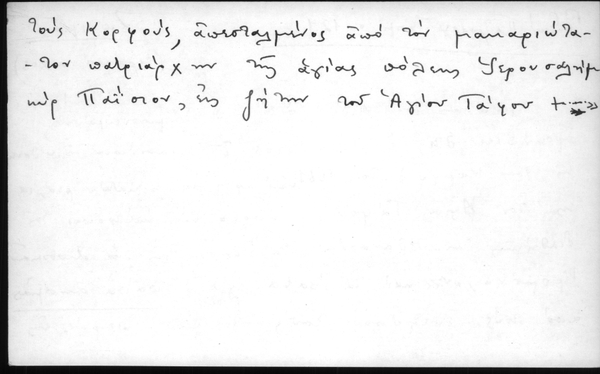 τοὺς Κορφούς, ἀπεσταλμένος ἀπό τόν μακαριώτα-
-τον πατριάρχην τῆς ἁγίας πόλεως Ἱερουσαλήμ
κύρ Παΐσιον, εἰς ζήτην τοῦ Ἁγίου Τάφου